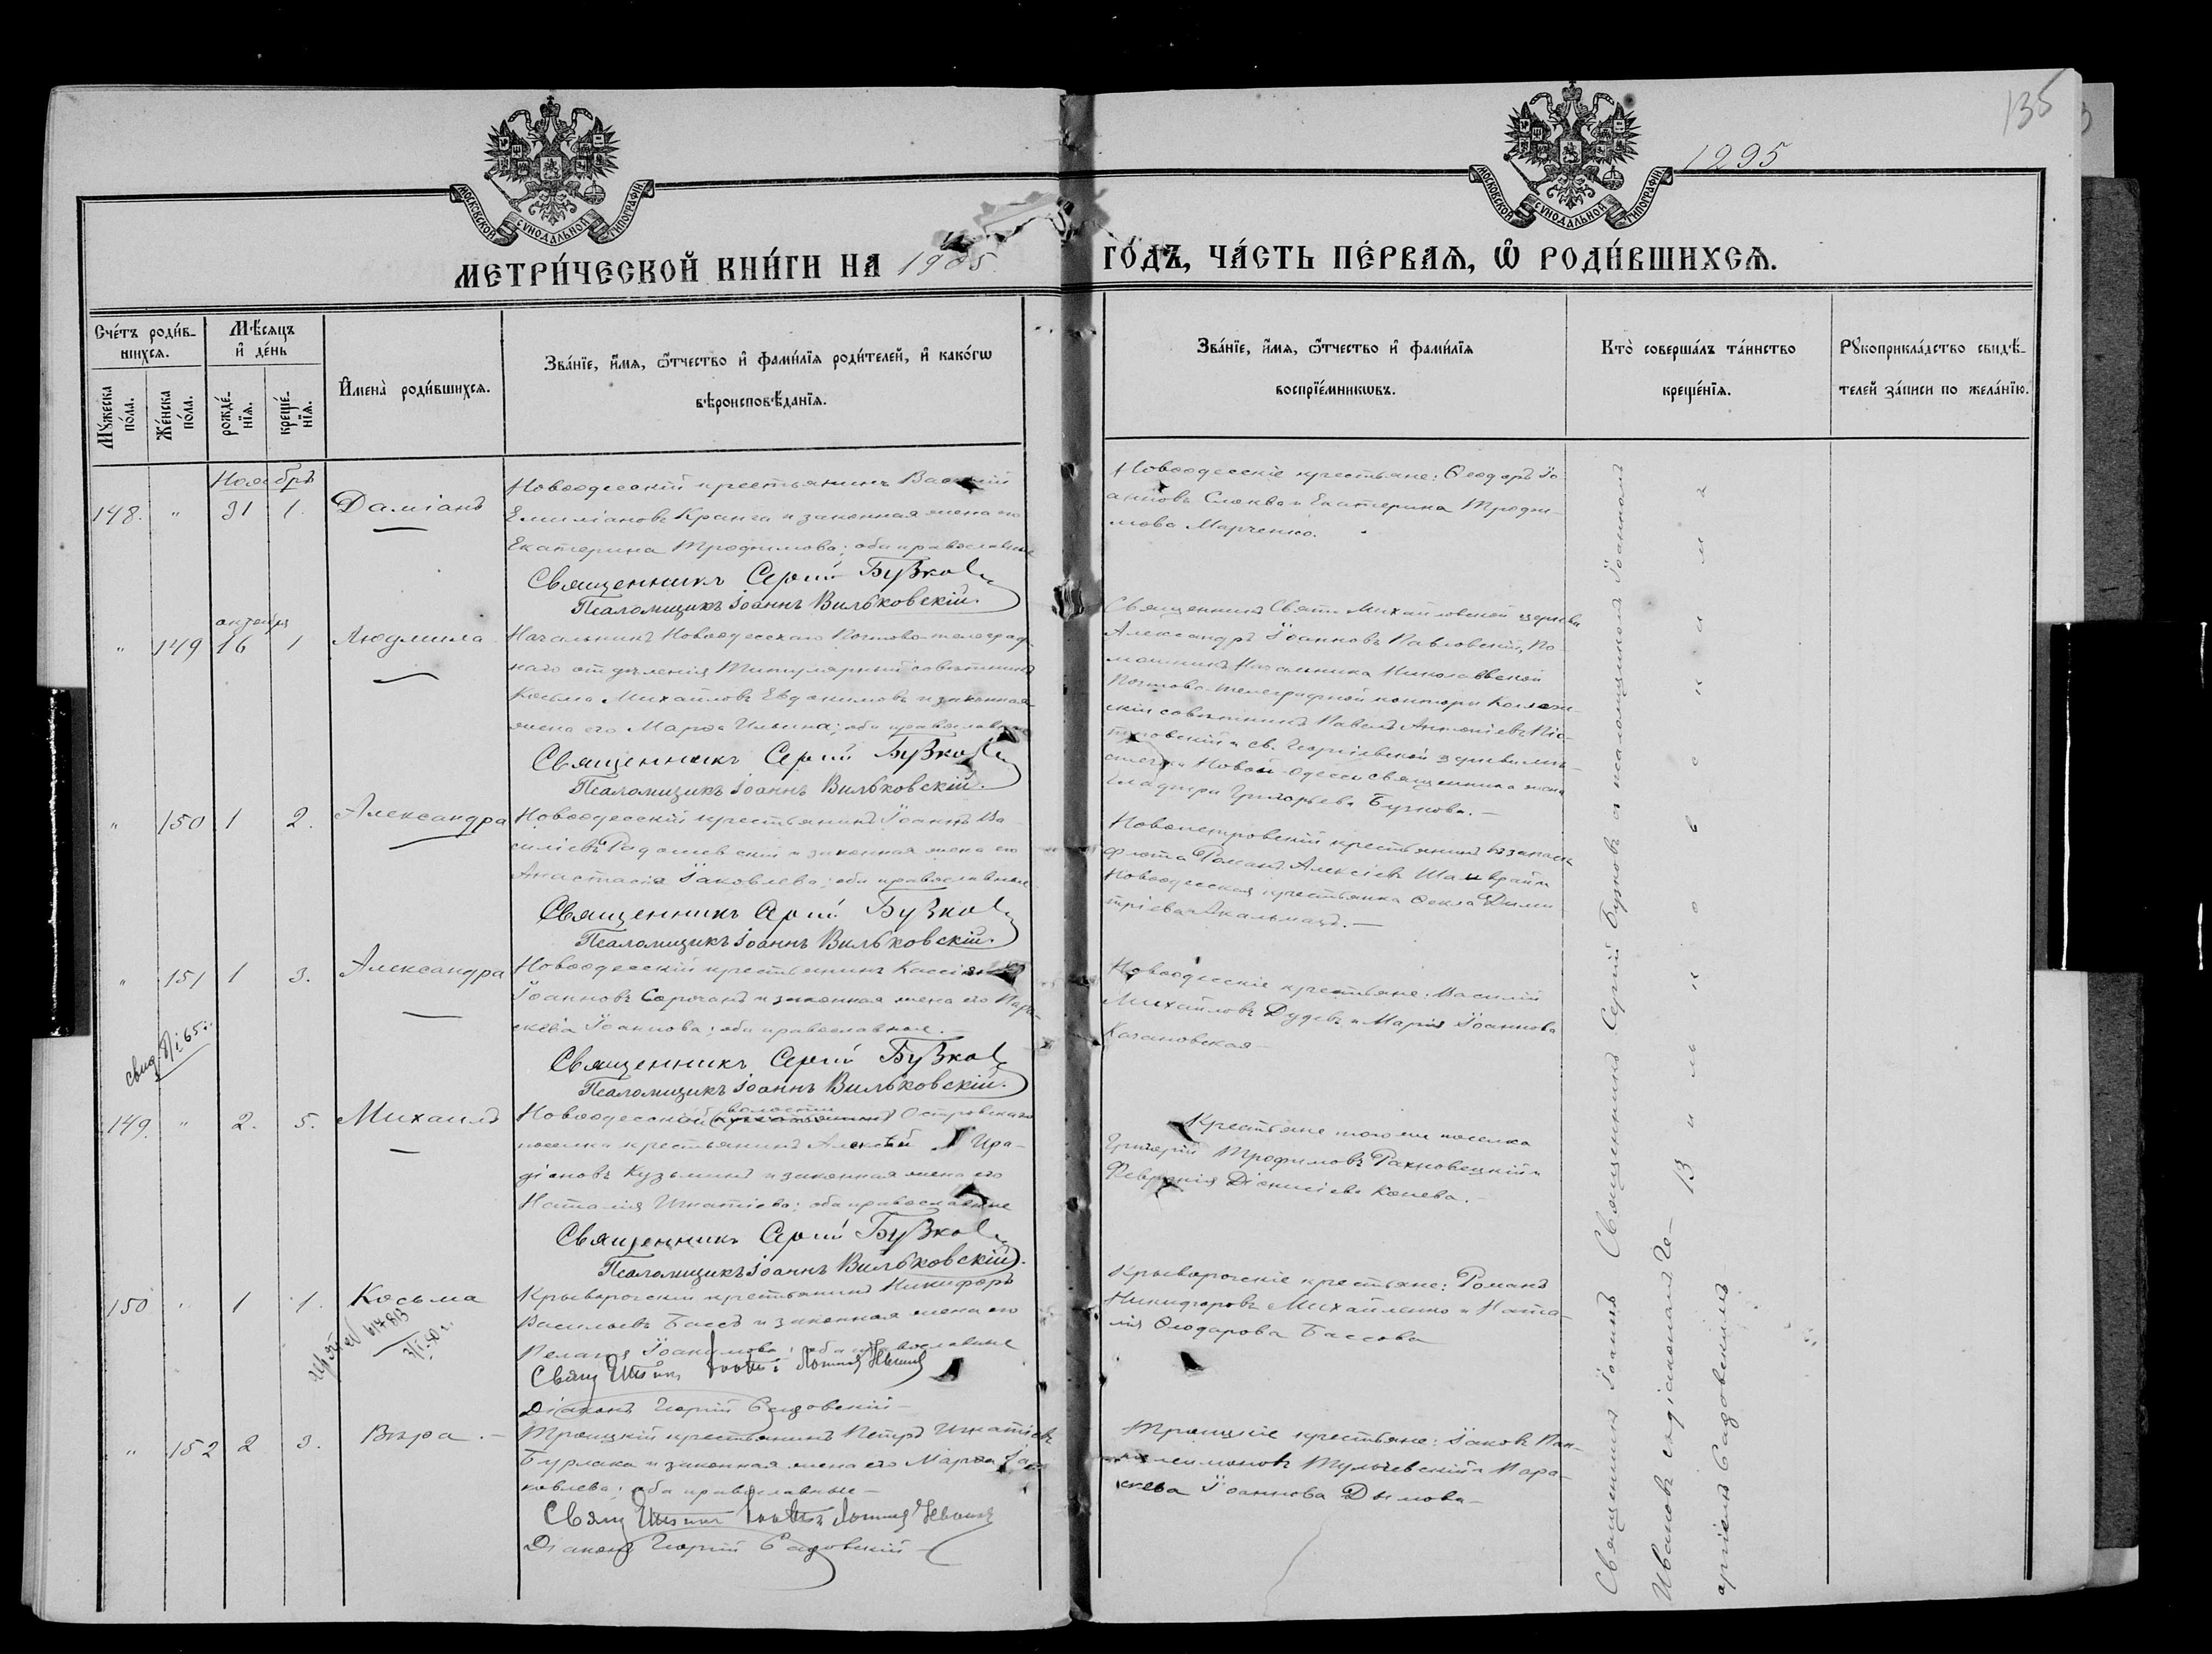 135
1295
МОСКОВСКОЙ СѴНОДАЛЬНОЙ ТИПОГРАФІИ
МОСКОВСКОЙ СѴНОДАЛЬНОЙ ТИПОГРАФІИ
МЕТРИ́ЧЕСКОЙ КНИ́ГИ НА 1905 ГО́ДЪ, ЧА́СТЬ ПЕ́РВАѦ, Ѡ҆ РОДИ́ВШИХСѦ.
Сче́тъ роди́в-
шихсѧ.
Мꙋ́жеска по́ла.
Же́нска по́ла.
Мѣ́сѧцъ
и҆ де́нь
рожде́-
нїѧ.
креще́-
нїѧ.
И҆мена̀ роди́вшихсѧ.
Зва́нїе, и҆́мѧ, ѻ҆́тчество и҆ фами́лїѧ роди́телей, и҆ како́гѡ
вѣроисповѣ́данїѧ.
Зва́нїе, и҆́мѧ, ѻ҆́тчество и҆ фами́лїѧ
воспрїе́мникѡвъ.
Кто̀ соверша́лъ та́инство
креще́нїѧ.
Рꙋкоприкла́дство свидѣ́-
телей за́писи по жела́нїю.
Ноябрь
148. " 31 1. Даміанъ
Новоодесскій крестьянинъ Василій
Емиліановъ Кранга и законная жена его
Екатерина Трофимова; оба православные
Священникъ Сергій Бузков
Псаломщикъ Іоаннъ Вильковскій.
Новоодесскіе крестьяне: Ѳеодоръ Іо
анновъ и Екатерина Трофи-
мова Марченко.
октября
" 149 16 1 Людмила
Начальникъ Новоодесскаго Почтово-телеграф-
наго отдѣленія Титулярный совѣтникъ
Косьма Михайловъ Евдокимовъ и законная
жена его Марѳа Ильина; оба православные
Священникъ Сергій Бузков
Псаломщикъ Іоаннъ Вильковскій.
Священникъ Свято-Михайловской церкви
Александръ Іоанновъ Павловскій, По-
мощникъ Начальника Николаевской
Почтово-телеграфной конторы Коллеж-
скій совѣтникъ Павелъ Антоніевъ
и св.
Новой-Одессы священника жена
Григорьева Бузкова.—
" 150 1 2. Александра
Новоодесскій крестьянинъ Іоаннъ Ва
силіевъ Радошевскій и законная жена его
Анастасія Іаковлева; оба православные
Священникъ Сергій Бузков
Псаломщикъ Іоаннъ Вильковскій.
Новопетровскій крестьянинъ
флота Романъ Алексіевъ и
Новоодесская крестьянка Ѳекла Дими
тріева .—
" 151 1 3. Александра
Новоодесскій крестьянинъ Кассіанъ
Іоанновъ Сорочанъ и законная жена его Пара-
скева Іоаннова; оба православные.—
Священникъ Сергій Бузков
Псаломщикъ Іоаннъ Вильковскій.
Новоодесскіе крестьяне: Василій
Михайловъ Дудевъ и Марія Іоаннова
Качановская—
149. " 2. 5. Михаилъ
Новоодесской волости Островскаго
поселка крестьянинъ Алексѣй Ира-
діоновъ Кузьминъ и законная жена его
Наталія Игнатіева; оба православные
Священникъ Сергій Бузков
Псаломщикъ Іоаннъ Вильковскій.
Крестьяне того-же поселка
Григорій Трофимовъ Рахновецкій и
Февронія Діонисіева Конева.—
150 " 1 1. Косьма
Криворогскій крестьянинъ Никифоръ
Васильевъ Бассъ и законная жена его
Пелагія Іоакимова; оба православные
Діаконъ Георгій Садовскій—
Криворогскіе крестьяне: Романъ
Никифоровъ Михайленко и Ната-
лія Ѳеодорова Бассова
" 152 2 3. Вѣра.—
Троицкій крестьянинъ Петръ Игнатіевъ
Бурлака и законная жена его Марѳа Іа
ковлева; оба православные—
Діаконъ Георгій Садовскій—
Троицкіе крестьяне: Іаковъ Пан-
телеимоновъ Тульчевскій и Пара-
скева Іоаннова Дымова—
Священникъ Сергій Бузковъ съ псаломщикомъ Іоанномъ
Вильковскимъ
Священникъ Іоаннъ
Ивановъ съ діакономъ Ге-
оргіемъ Садовскимъ